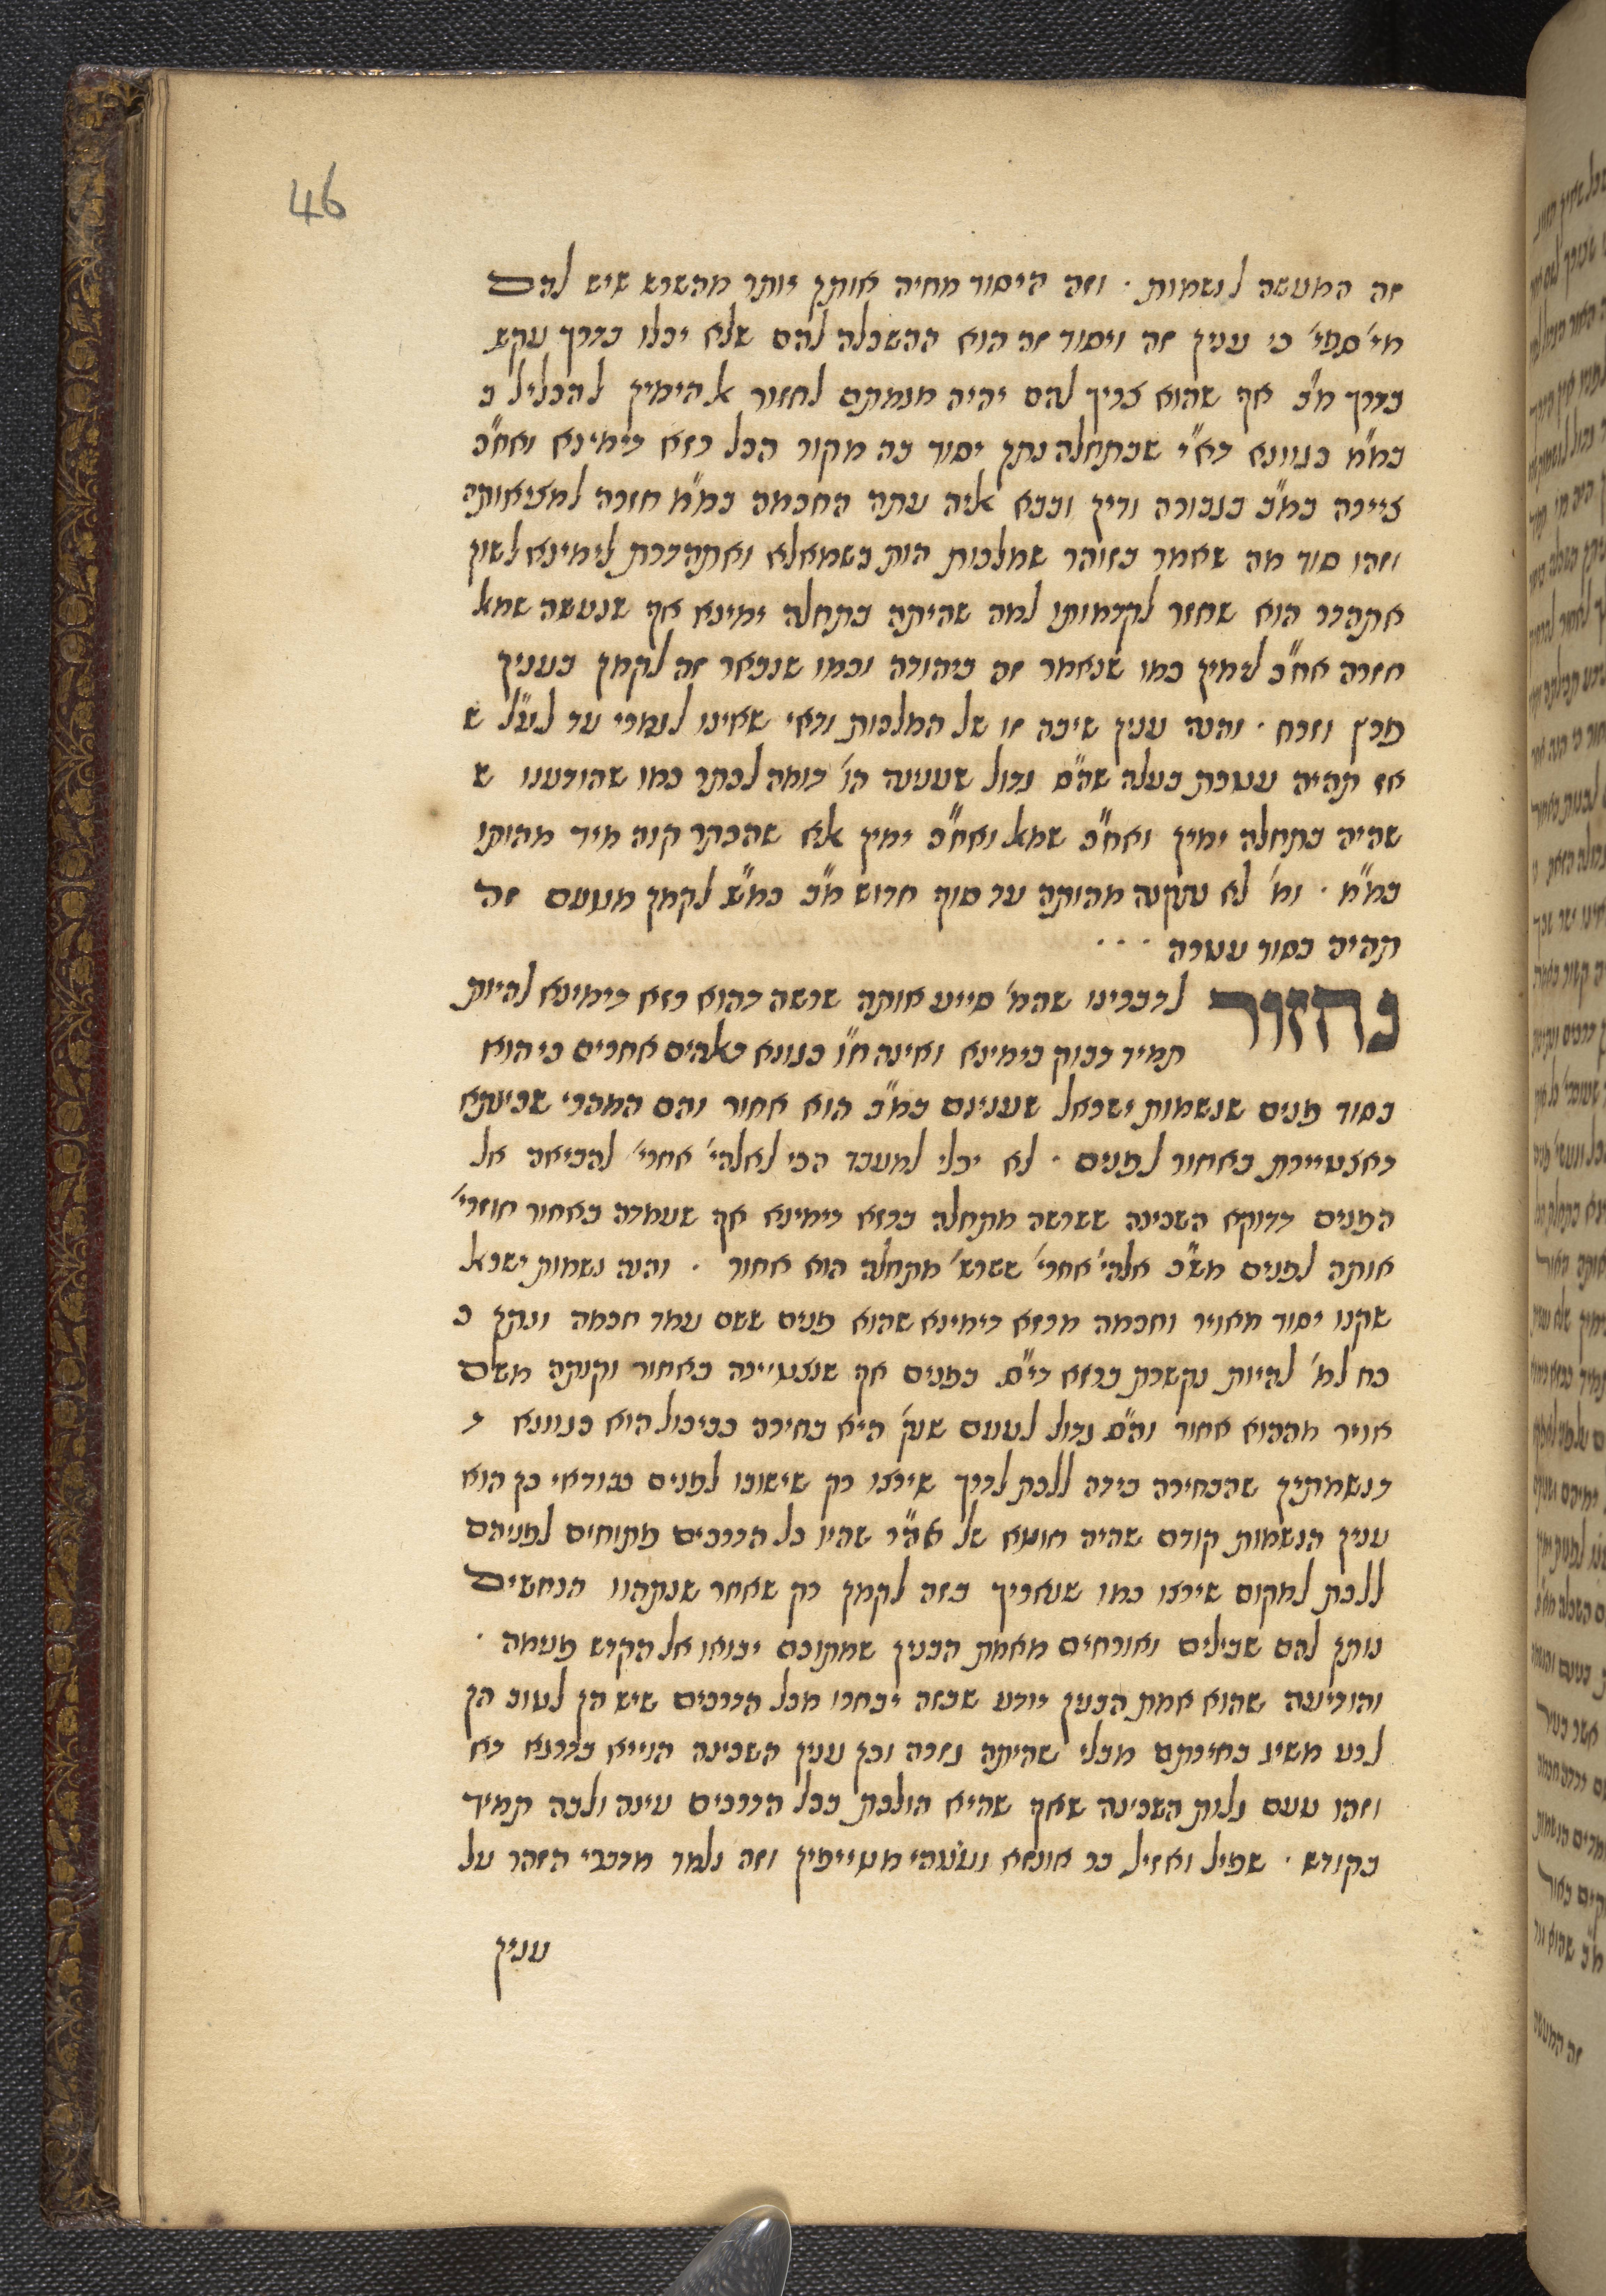 46
זה המעשה לנשמות · וזה היסוד מחיה אותן יותר מהשרש שיש להם
מי׳ ספי׳ כי ענין זה ויסוד זה הוא ההשכלה להם שלא יכלו בדרך עקש
בדרך מ״ב אף שהוא צריך להם יהיה מגמתם לחזור אל הימין להכליל כ
במ״מ כגוונא דא״י שבתחלה נתן יסוד בה מקור הכל רזא דימינא ואח״כ
ציירה במ״ב בגבורה ודין ובבא אליה עתה החכמה במ״מ חזרה למציאותה
וזהו סוד מה שאמר בזוהר שמלכות הות בשמאלא ואתהדרת לימינא לשון
אתהדר הוא שחזר לקדמותו למה שהיתה בתחלה ימינא אף שנעשה שמאל
חזרה אח״כ לימין כמו שנאמר זה ביהודה וכמו שנבאר זה לקמן בענין
פרץ וזרח · והנה ענין שיבה זו של המלכות ודאי שאינו לגמרי עד לע״ל ש
אז תהיה עטרת בעלה שה״ס גדול שטענה הו׳ דומה לכתר כמו שהודענו ש
שהיה בתחלה ימין ואח״כ שמאל ואח״כ ימין אלא שהכתר קנה מיד מהותו
במ״מ · ומ׳ לא תקנה מהותה עד סוף חדוש מ״ב כמ״ש לקמן מטעם זה
תהיה בסוד עטרה · · ·
נחזור לדברינו שהמ׳ סייע אותה שרשה דהוא רזא דימינא להיות
תמיד דבוק בימינא ואינה ח״ו כגוונא דאלהים אחרים כי הוא
בסוד פנים שנשמות ישראל שענינם במ״ב הוא אחור והם המהדי שכינתא
דאצטיירת באחור לפנים · לא יכלי למעבד הכי לאלהי׳ אחרי׳ להביאה אל
הפנים דדוקא השכינה ששרשה מתחלה ברזא דימינא אף שעמדה באחור חוזרי׳
אותה לפנים מש״כ אלהי׳ אחרי׳ ששרש׳ מתחלה הוא אחור · והנה נשמות ישראל
שקנו יסוד מאויר וחכמה מרזא דימינא שהוא פנים ששם עמד חכמה ונתן כ
כח למ׳ להיות נקשרת ברזא די״ס בפנים אף שנצטיירה באחור וקנתה משם
אויר מההוא אחור וה״ס גדול לטעם שנק׳ היא בחירה כביכול הוא כגוונא ד
דנשמתין שהבחירה בידה ללכת לדרך שירצו רק שישובו לפנים כבודאי כן הוא
ענין הנשמות קודם שהיה חוטא של אה״ר שהיו כל הדרכים פתוחים לפניהם
ללכת למקום שירצו כמו שנאריך בזה לקמן רק שאחר שנתהוו הנחשים
נותן להם שבילים ואורחים מאמת הבנין שמתוכם יבואו אל הקדש פנימה ·
והודיעה שהוא אמת הבנין יודע שבזה יבחרו מכל הדרכים שיש הן לטוב הן
לרע משיג בחירתם מבלי שהיתה גזרה וכן ענין השכינה הנייא כדרגא דא
וזהו טעם גלות השכינה שאף שהיא הולכת בכל הדרכים עינה ולבה תמיד
בקודש · שפיל ואזיל בר אווזא ועינוהי מטייפין וזה נלמד מדברי הזהר על
ענין